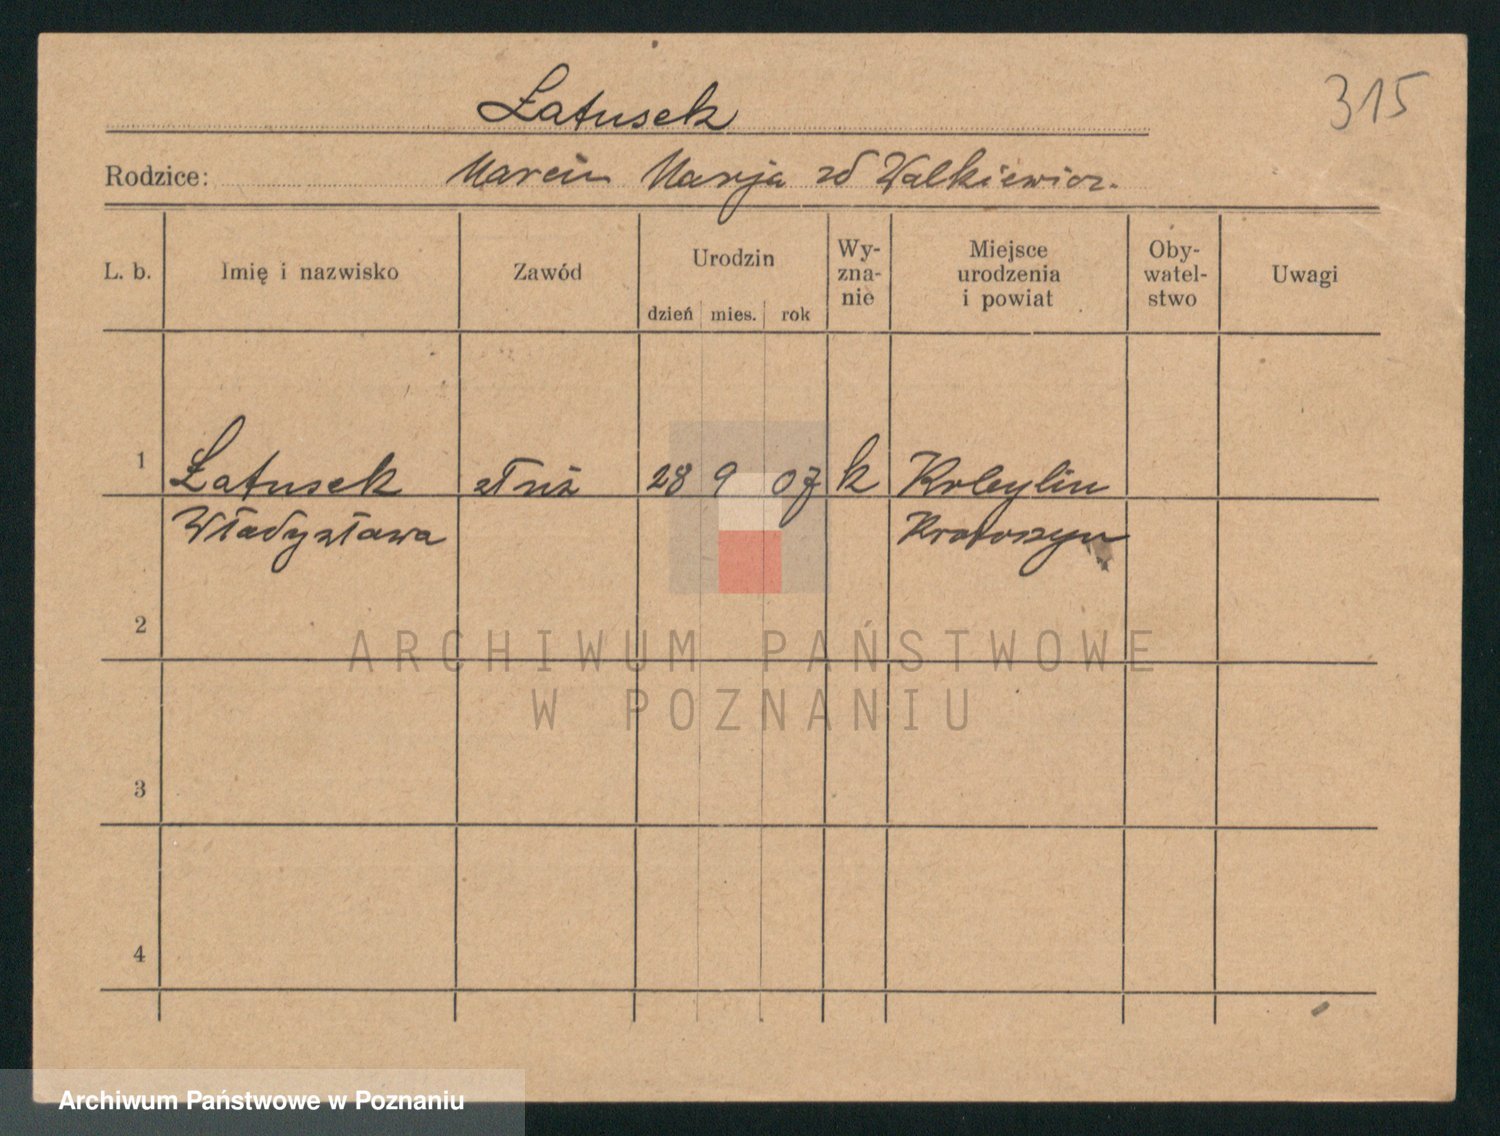 315
Łatusek
Rodzice: Marcin Marja zd Walkiewicz.
L. b. Imię i nazwisko Zawód Urodzin dzień mies. rok Wy-zna-nie Miejsce urodzenia i powiat Oby-watel-stwo Uwagi
1 Łatusek służ 28 9 07 k Kobylin
Władysława Krotoszyn
2
ARCHIWUM PAŃSTWOWE
W POZNANIU
3
4
Archiwum Państwowe w Poznaniu